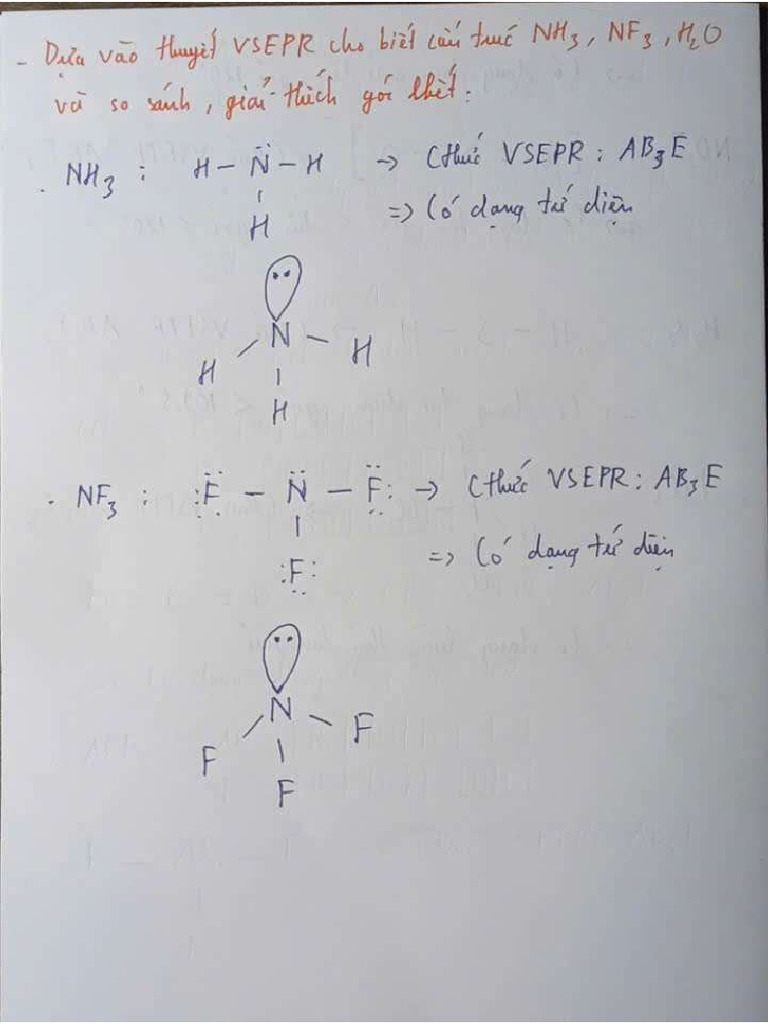 - Dựa vào thuyết VSEPR cho biết cấu trúc NH₃, NF₃, H₂O
và so sánh, giải thích góc lkết:
. NH₃ : H – N̈ – H → Cthức VSEPR : AB₃E
H => Có dạng tứ diện
N
H H
H
. NF₃ : :F̈ – N̈ – F̈: → Cthức VSEPR : AB₃E
:F: => Có dạng tứ diện
N
F F
F